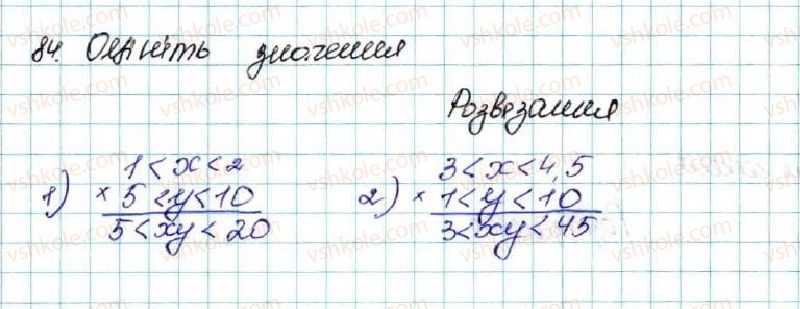 84. Оцініть значення
Розвязання
1) 1 < x < 2
× 5 < y < 10
5 < xy < 20
2) 3 < x < 4,5
× 1 < y < 10
3 < xy < 45
vshkole.com